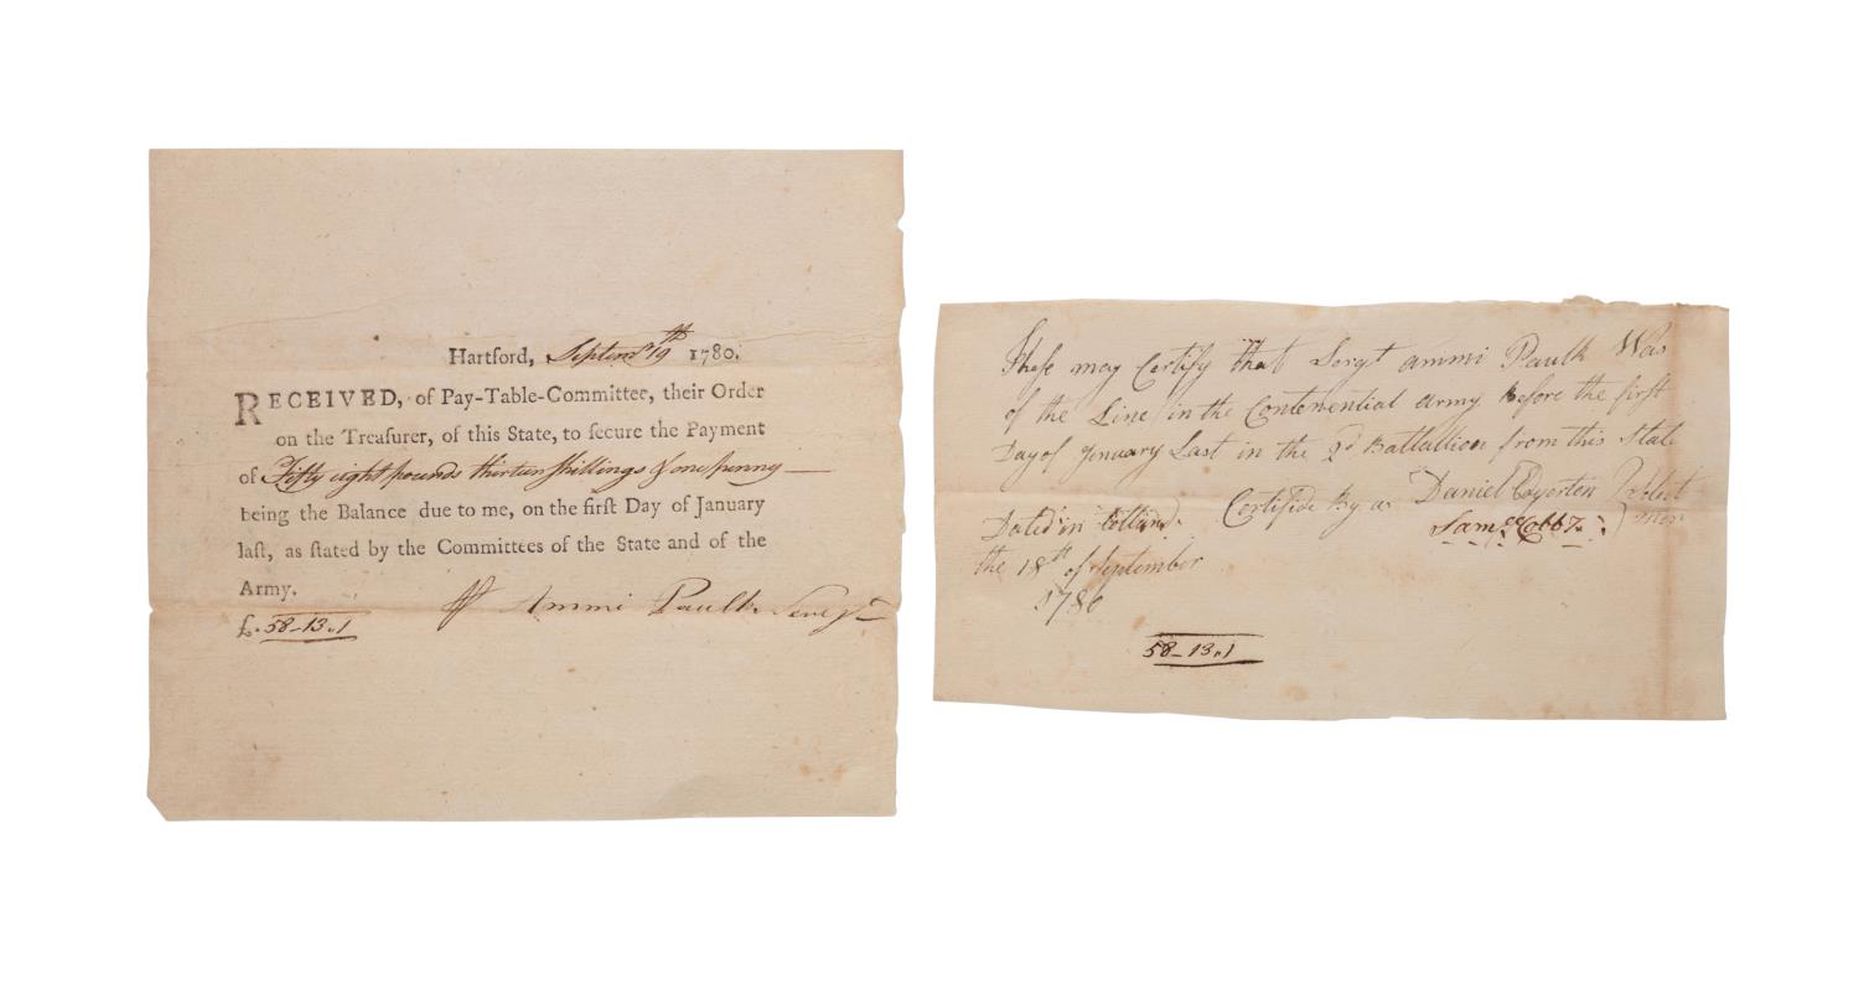 Hartford, Septemr 19th 1780.
RECEIVED, of Pay-Table-Committee, their Order
on the Treaſurer, of this State, to ſecure the Payment
of Fifty eight pounds thirteen ſhillings & one penny —
being the Balance due to me, on the firſt Day of January
laſt, as ſtated by the Committees of the State and of the
Army.
Ammi Paulk Sergt
£. 58-13.,1
Theſe may Certify that Sergt ammi Paulk Was
of the Line in the Contenential army Before the first
Day of Jenuary Last in the 2d Battallion from this State
Certifide By us Daniel Edgerten } Select
Saml Cobb } men
Dated in Tolland
the 18th of September
1780
58-13.,1